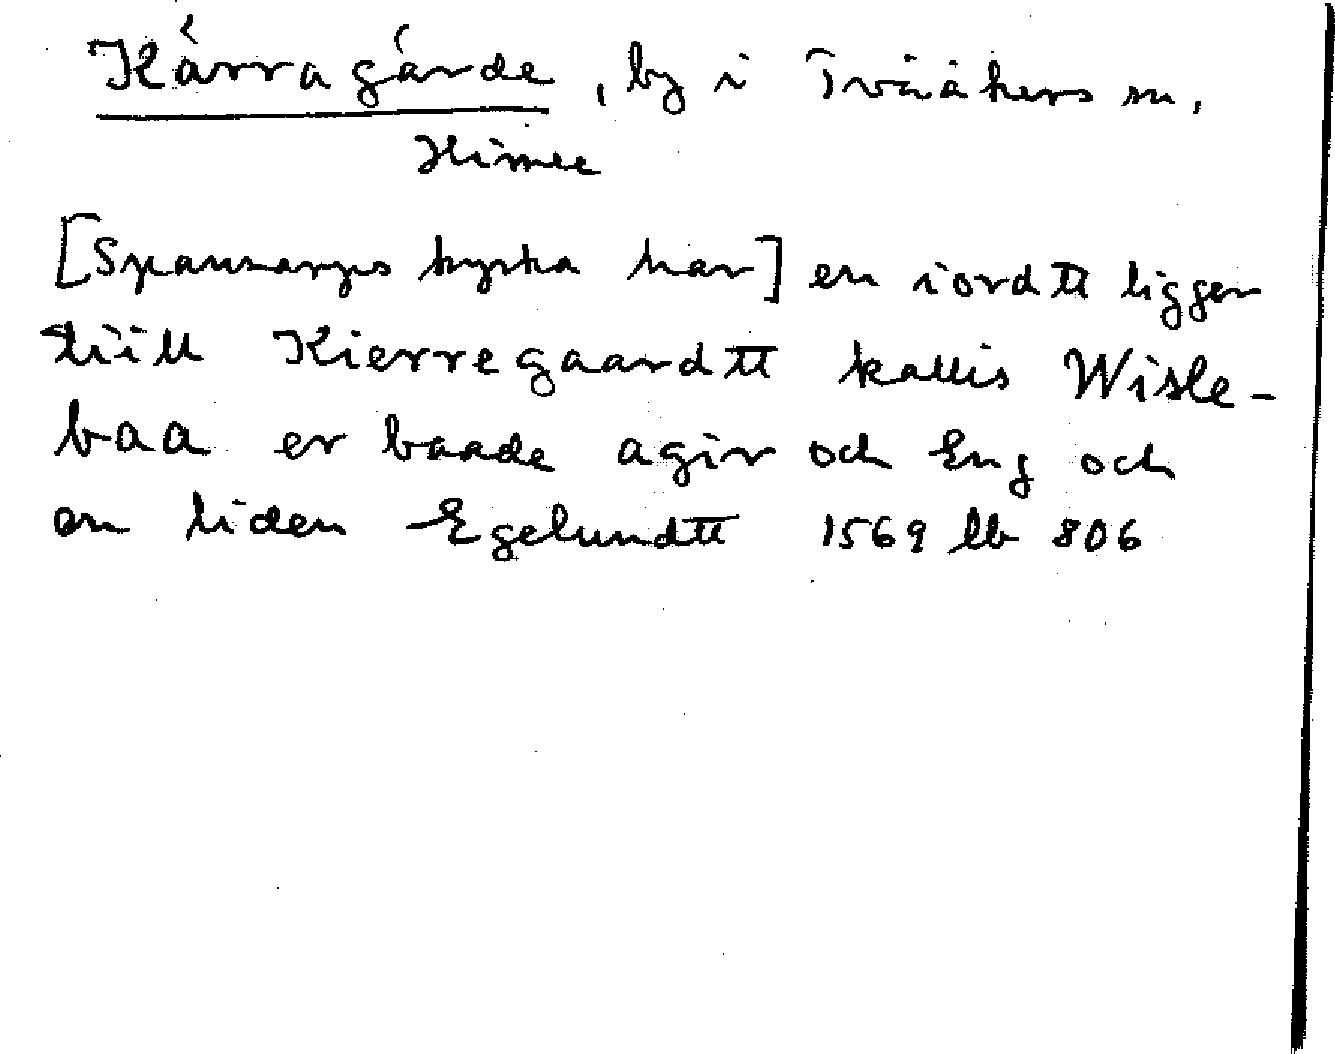 Kärragärde, by i Tvååkers sn,
Himle
[Spannarps kyrka har] en iordtt ligger
tiill Kierregaardtt kallis Wisle-
baa er baade agir och Eng och
en liden Egelundtt 1569 lb 806